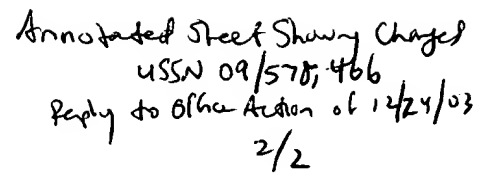 Annotated Sheet Showing Changes
USSN 09/578,466
Reply to Office Action of 12/24/03
2/2